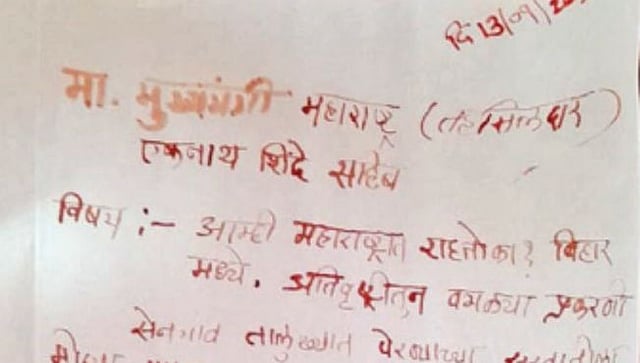 दि 13/09/
मा. मुख्यमंत्री महाराष्ट्र (तहसिलदार)
एकनाथ शिंदे साहेब
विषय :- आम्ही महाराष्ट्रात राहतो का? बिहार
मध्ये. अतिवृष्टीतुन वगळल्या प्रकरणी
सेनगाव तालुक्यात येरण्याच्या